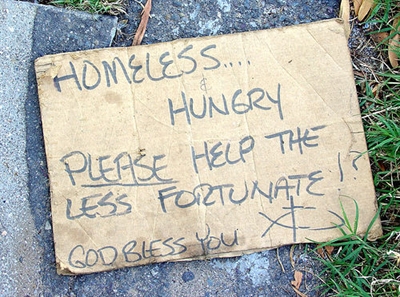 HOMELESS....
&
HUNGRY
PLEASE HELP THE
LESS FORTUNATE!?
GOD BLESS YOU